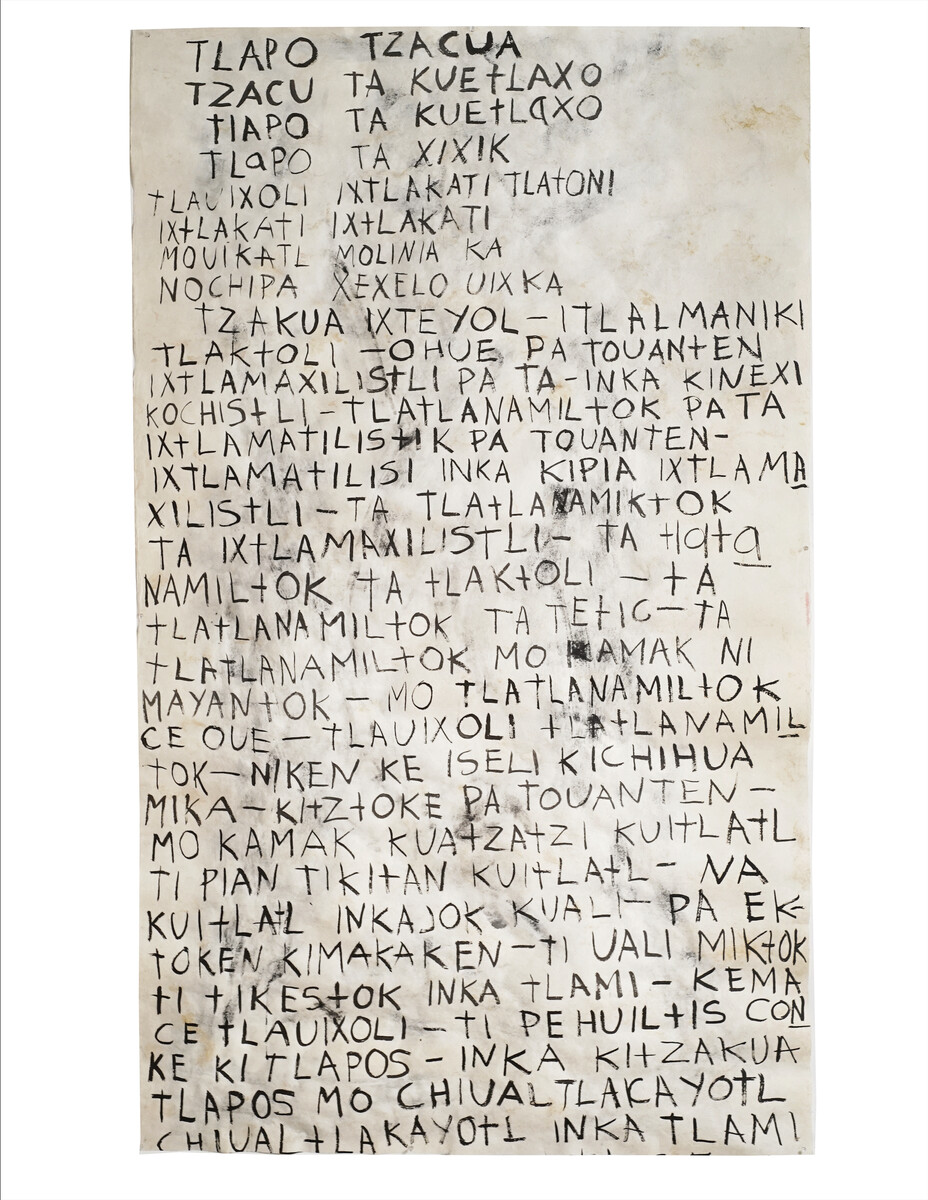 TLAPO TZACUA
TZACU TA KUETLAXO
TIAPO TA KUETLAXO
TLAPO TA XIXIK
TLAUIXOLI IXTLAKATI TLATONI
IXTLAKATI IXTLAKATI
MOUIKATL MOLINIA KA
NOCHIPA XEXELO UIXKA
TZAKUA IXTEYOL-ITLALMANIKI
TLAKTOLI -OHUE PA TOUANTEN
IXTLAMAXILISTLI PA TA-INKA KINEXI
KOCHISTLI-TLATLANAMILTOK PA TA
IXTLAMATILISTIK PA TOUANTEN-
IXTLAMATILISI INKA KIPIA IXTLAMA
XILISTLI-TA TLATLANAMIKTOK
TA IXTLAMAXILISTLI- TA tlata
NAMILTOK TA TLAKTOLI - TA
TLATLANAMILTOK TA TETIC-TA
TLATLANAMILTOK MO KAMAK NI
MAYANTOK - MO TLATLANAMILTOK
CE OUE - TLAUIXOLI TLATLANAMIL
TOK-NIKEN KE ISELI KICHIHUA
MIKA-KITZTOKE PA TOUANTEN-
MO KAMAK KUATZATZI KUITLATL
TI PIAN TIKITAN KUITLATL- NA
KUITLATL INKAJOK KUALI- PA EK-
TOKEN KIMAKAKEN-TI UALI MIKTOK
TI TIKESTOK INKA TLAMI- KEMA
CE TLAUIXOLI-TI PEHUILTIS CON
KE KITLAPOS-INKA KITZAKUA
TLAPOS MO CHIUALTLACAYOTL
CHIUALTLAKAYOTL INKA TLAMI